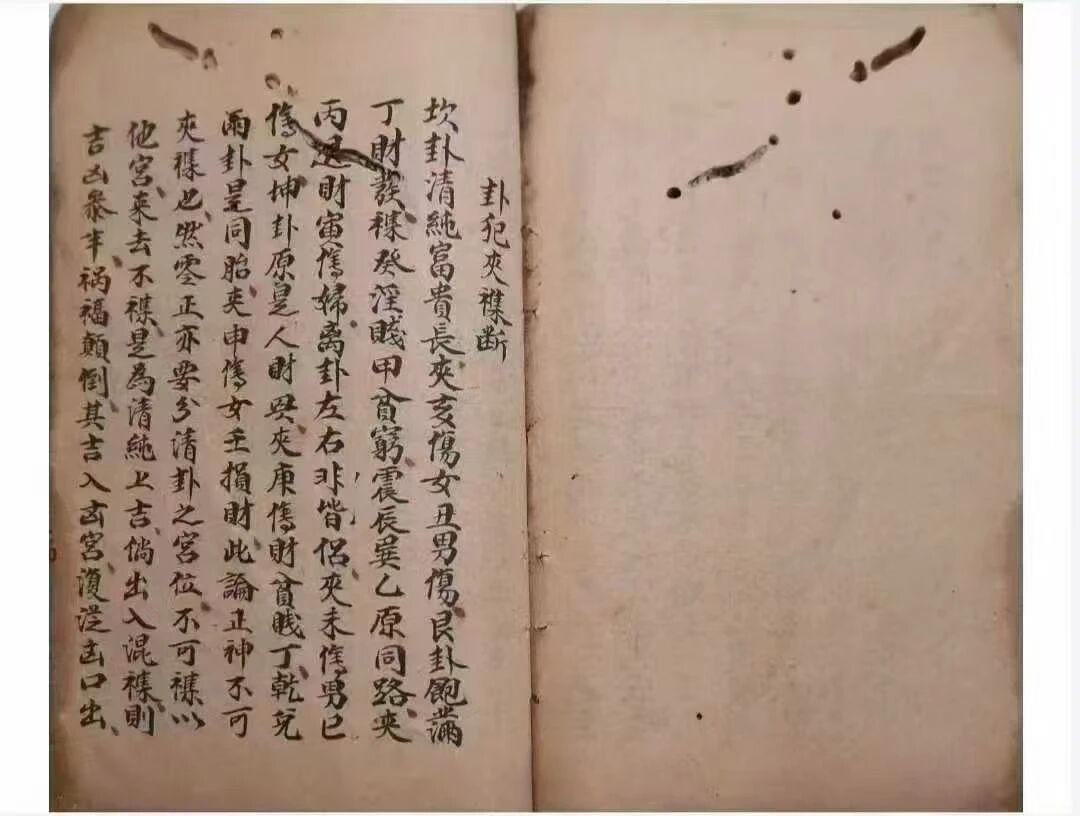 卦犯夾襍断
坎卦清純富貴長夾亥傷女丑男傷艮卦飽滿
丁財發襍癸淫賤甲貧窮震辰巽乙原同路夾
丙退財寅傷婦离卦左右非皆侣夾未傷男巳
傷女坤卦原是人財毋夾庚傷財貧賎丁乾兌
兩卦是同胎夾申傷女壬損財此論正神不可
夾襍也然零正亦要分清卦之宮位不可襍以
他宮來去不襍是為清純上吉倘出入混襍則
吉凶叅半祸福顛倒其吉入凶宮復從凶口出